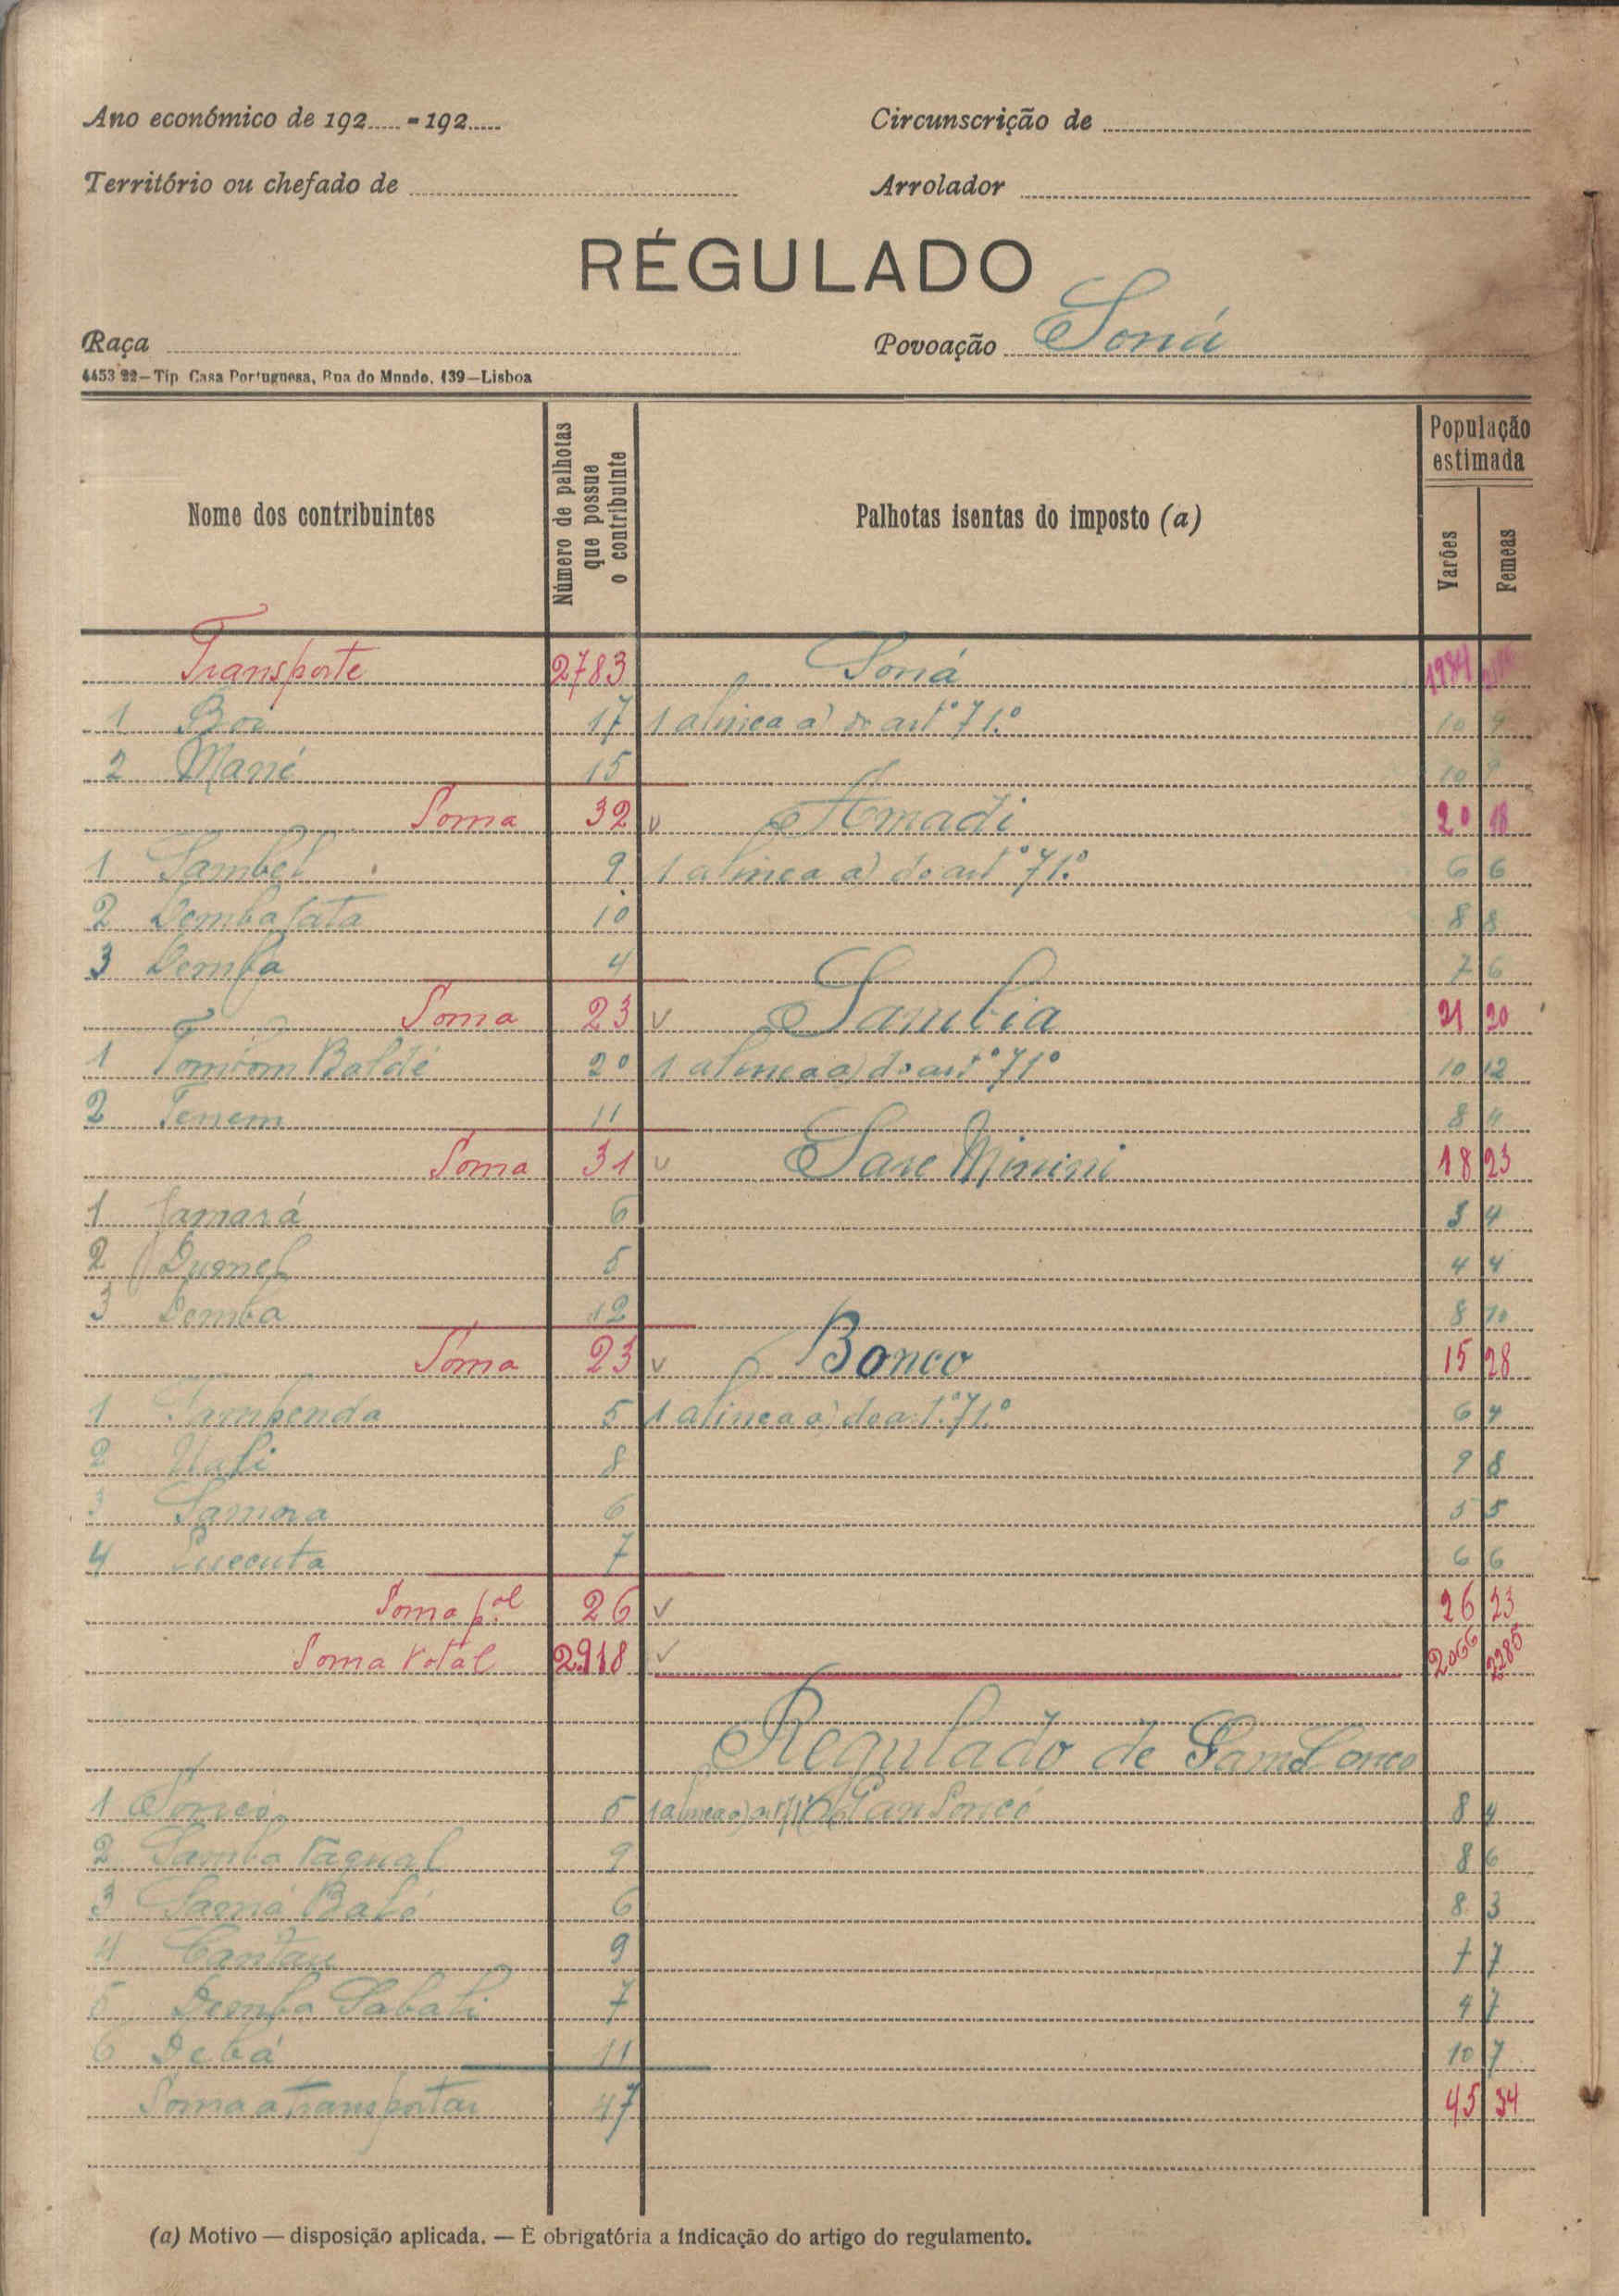 Ano económico de 192..... - 192.....
Circunscrição de
Território ou chefado de
Arrolador
RÉGULADO
Raça
Povoação Soná
4453 22—Tip Casa Portuguesa, Rua do Mundo, 139—Lisboa
Nome dos contribuintes
Número de palhotas que possue o contribuinte
Palhotas isentas do imposto (a)
População estimada
Varões
Femeas
Transporte 2783 Soná 1984
1 17 1 alinea a) do artº 71.º 10 9
2 Mané 15 10 9
Soma 32 v Amadi 20 18
1 Sambel 9 1 alinea a) do artº 71.º 6 6
2 Demba 10 8 8
3 Demba 4 7 6
Soma 23 v Sambia 21 20
1 Baldé 20 1 alinea a) do artº 71º 10 12
2 Tenem 11 8 11
Soma 31 v Sare 18 23
1 6 3 4
2 5 4 4
3 Demba 12 8 10
Soma 23 v Bonco 15 28
1 5 1 alinea a) do art.º 71.º 6 4
2 8 9 8
3 Samora 6 5 5
4 7 6 6
Soma p.al 26 v 26 23
Soma total 2918 v 2066 2285
Regulado de
1 5 8 4
2 Samba 9 8 6
3 6 8 3
4 9 7 7
5 Demba Sabali 7 4 7
6 Debá 11 10 7
Soma a transportar 47 45 34
(a) Motivo — disposição aplicada. — É obrigatória a indicação do artigo do regulamento.